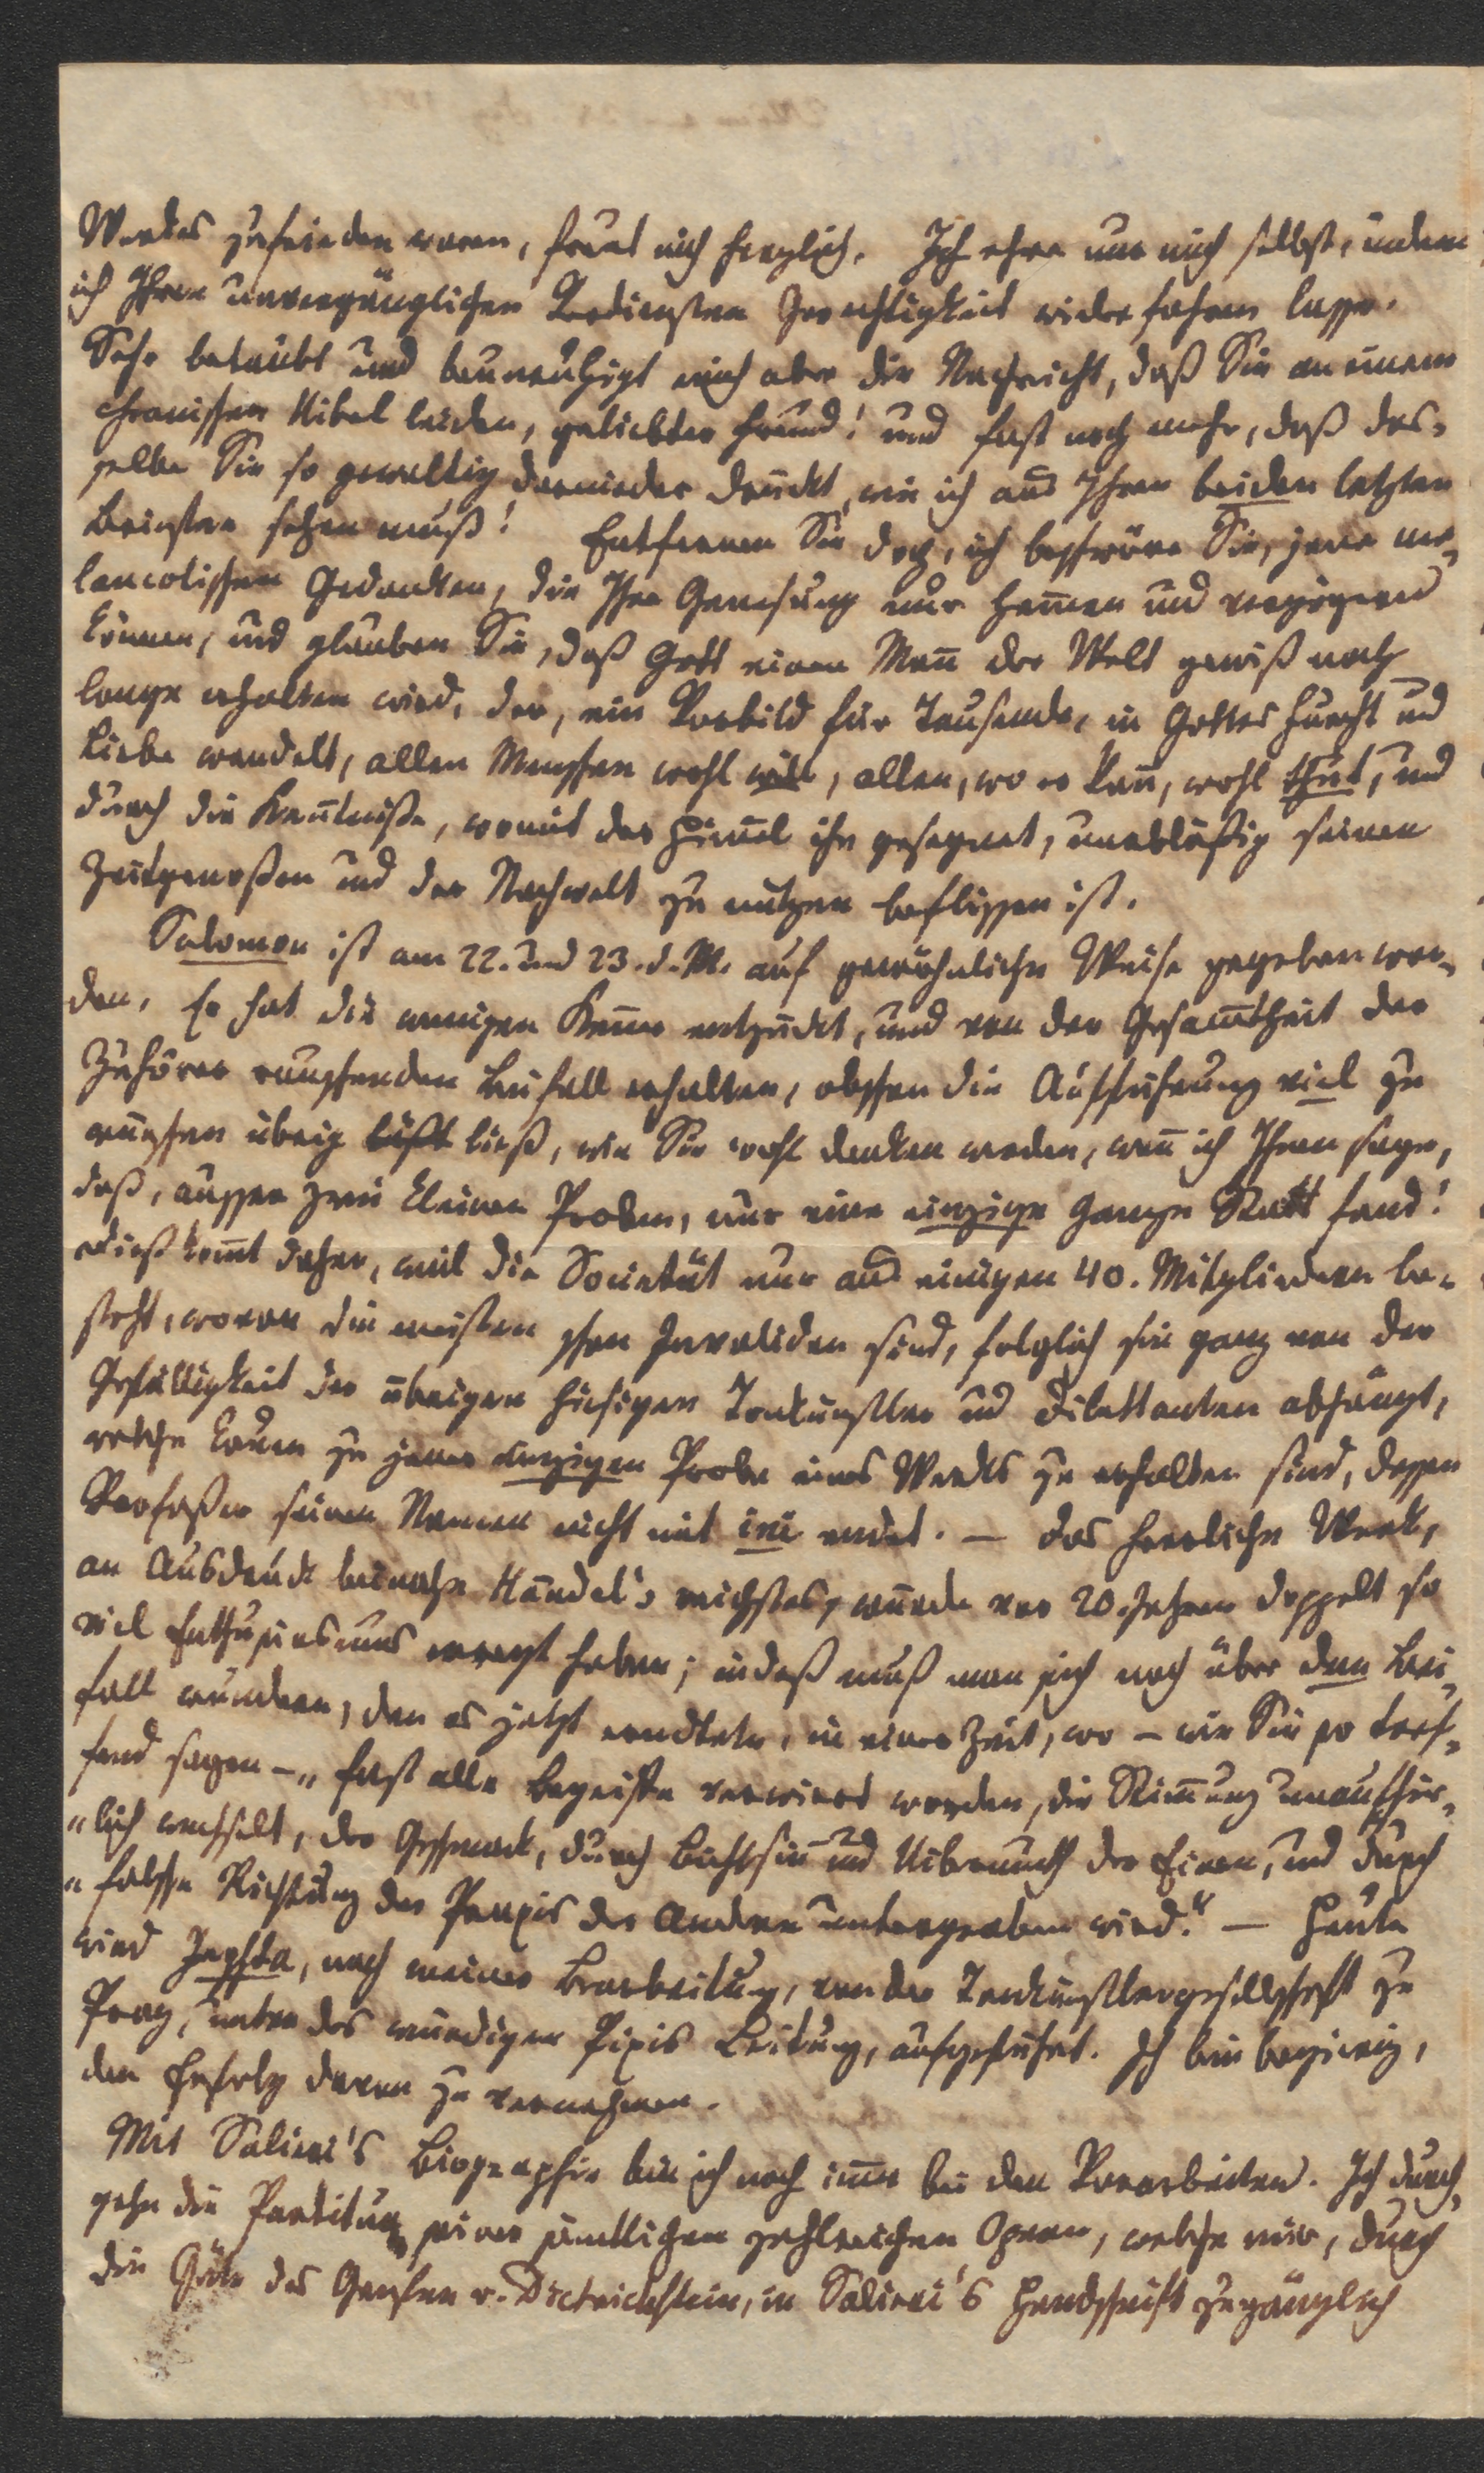 Werkes zufrieden waren, freut mich herzlich. Ich ehre nur mich selbst, indem
ich Ihren unvergänglichen Verdiensten Gerechtigkeit widerfahren lasse.
Sehr betrübt und beunruhigt mich aber die Nachricht, daß Sie an einem
chronischen Uibel leiden, geliebter Freund! und fast noch mehr, daß das-
selbe Sie so gewaltig darnieder drückt, wie ich aus Ihren beiden letzten
Briefen sehen muß! Entfernen Sie doch, ich beschwöre Sie, jene me-
lancolischen Gedanken, die Ihre Genesung nur hem̅en und verzögern
können, und glauben Sie, daß Gott einen Man̅ der Welt gewiß noch
lange erhalten wird, der, ein Vorbild für Tausende, in Gottes Furcht und
Liebe wandelt, allen Menschen wohl will, allen, wo er kan̅, wohl thut, und
durch die Ken̅tniße, womit der Him̅el ihn gesegnet, unabläßig seinen
Zeitgenoßen und der Nachwelt zu nützen beflissen ist.
Salomon ist am 22. und 23. d. M. auf gewöhnliche Weise gegeben wor-
den. Er hat die wenigen Ken̅er entzückt, und von der Gesam̅theit der
Zuhörer rauschenden Beifall erhalten, obschon die Aufführung viel zu
wünschen übrig läßt ließ, wie Sie wohl denken werden, wen̅ ich Ihnen sage,
daß, ausser zwei kleinen Proben, nur eine einzige ganze Statt fand!
Dieß kom̅t daher, weil die Societät nur aus einigen 40. Mitgliedern be-
steht, wovon die meisten schon Invaliden sind, folglich sie ganz von der
Gefälligkeit der übrigen hiesigen Tonkünstler und Dilettanten abhängt,
welche kaum zu jener einzigen Probe eines Werks zu erhalten sind, dessen
Verfaßer seinen Namen nicht mit ini endet. – Das herrliche Werk,
an Ausdruck beinahe Händel's reichstes, würde vor 20 Jahren doppelt so
viel Enthusiasmus erregt haben; indeß muß man sich noch über den Bei-
fall wundern, den es jetzt erndtete, in einer Zeit, wo – wie Sie so tref-
fend sagen – „fast alle Begriffe verwirrt werden, die Stim̅ung unaufhör-
„lich wechselt, der Geschmack, durch Leichtsin̅ und Uibermuth der Einen, und durch
„falsche Richtung der Praxis der Andern untergraben wird." – Heute
wird Jephta, nach meiner Bearbeitung, von der Tonkünstlergesellschaft zu
Prag, unter des würdigen Pixis Leitung, aufgeführt. Ich bin begierig,
den Erfolg davon zu vernehmen.
Mit Salieri's Biographie bin ich noch im̅er bei den Vorarbeiten. Ich durch-
gehe die Partituren seiner sämtlichen zahlreichen Opern, welche mir, durch
die Güte des Grafen v. Dietrichstein, in Salieri's Handschrift zugänglich